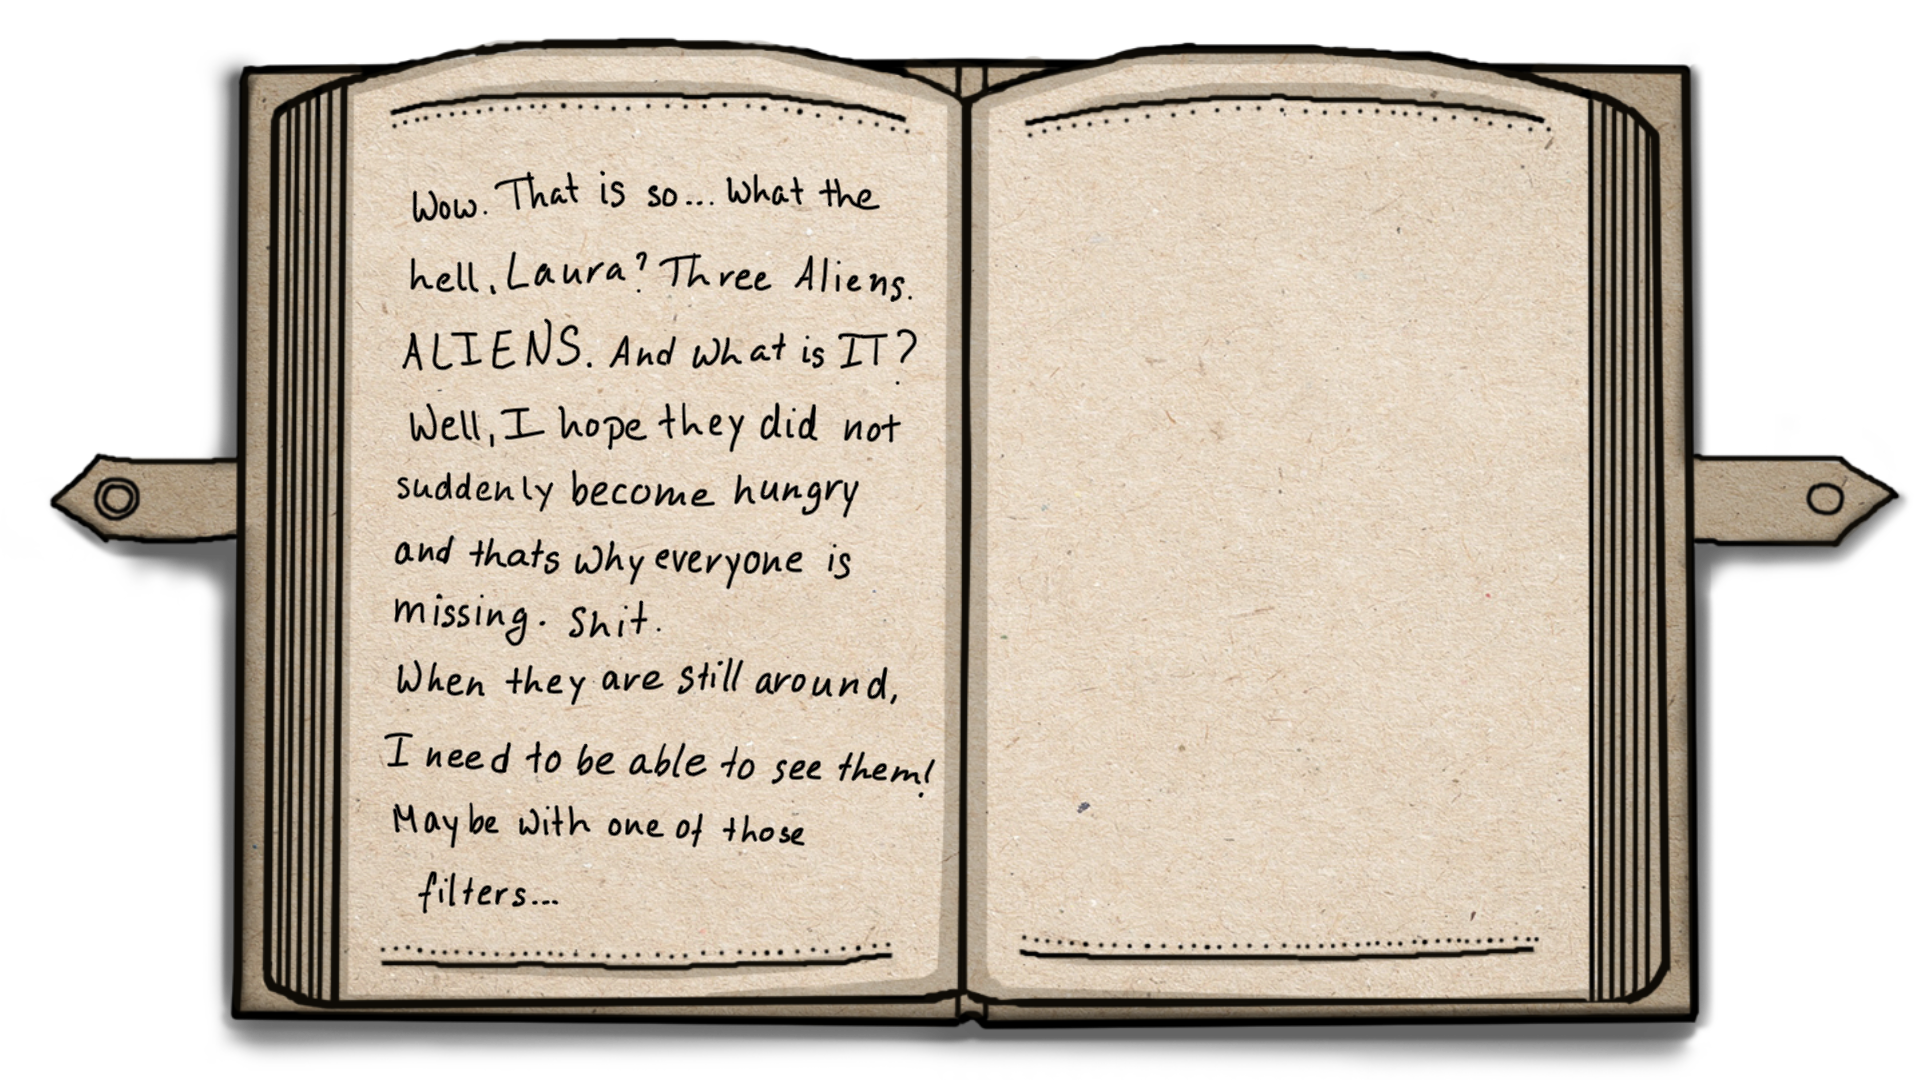 Wow. That is so... What the
hell, Laura? Three Aliens.
ALIENS. And what is IT?
Well, I hope they did not
suddenly become hungry
and thats why everyone is
missing. Shit.
When they are still around,
I need to be able to see them!
Maybe with one of those
filters...